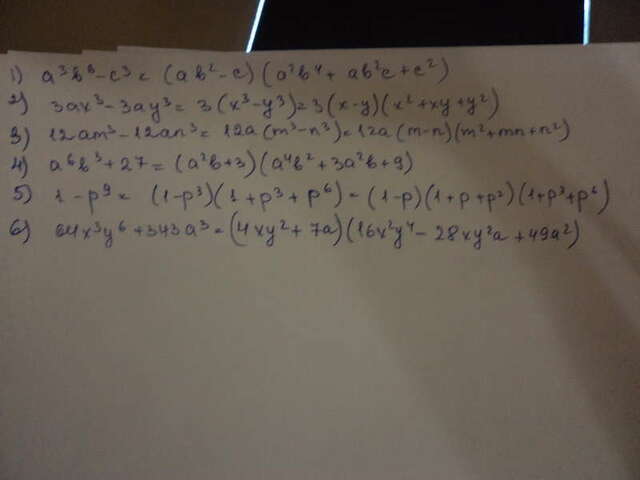 1) a³b⁶-c³ = (ab²-c)(a²b⁴+ ab²c+c²)
2) 3ax³-3ay³= 3(x³-y³)=3(x-y)(x²+xy+y²)
3) 12am³-12an³= 12a(m³-n³)=12a(m-n)(m²+mn+n²)
4) a⁶b³+27=(a²b+3)(a⁴b²+3a²b+9)
5) 1-p⁹= (1-p³)(1+p³+p⁶)=(1-p)(1+p+p²)(1+p³+p⁶)
6) 64x³y⁶+343a³=(4xy²+7a)(16x²y⁴-28xy²a+49a²)